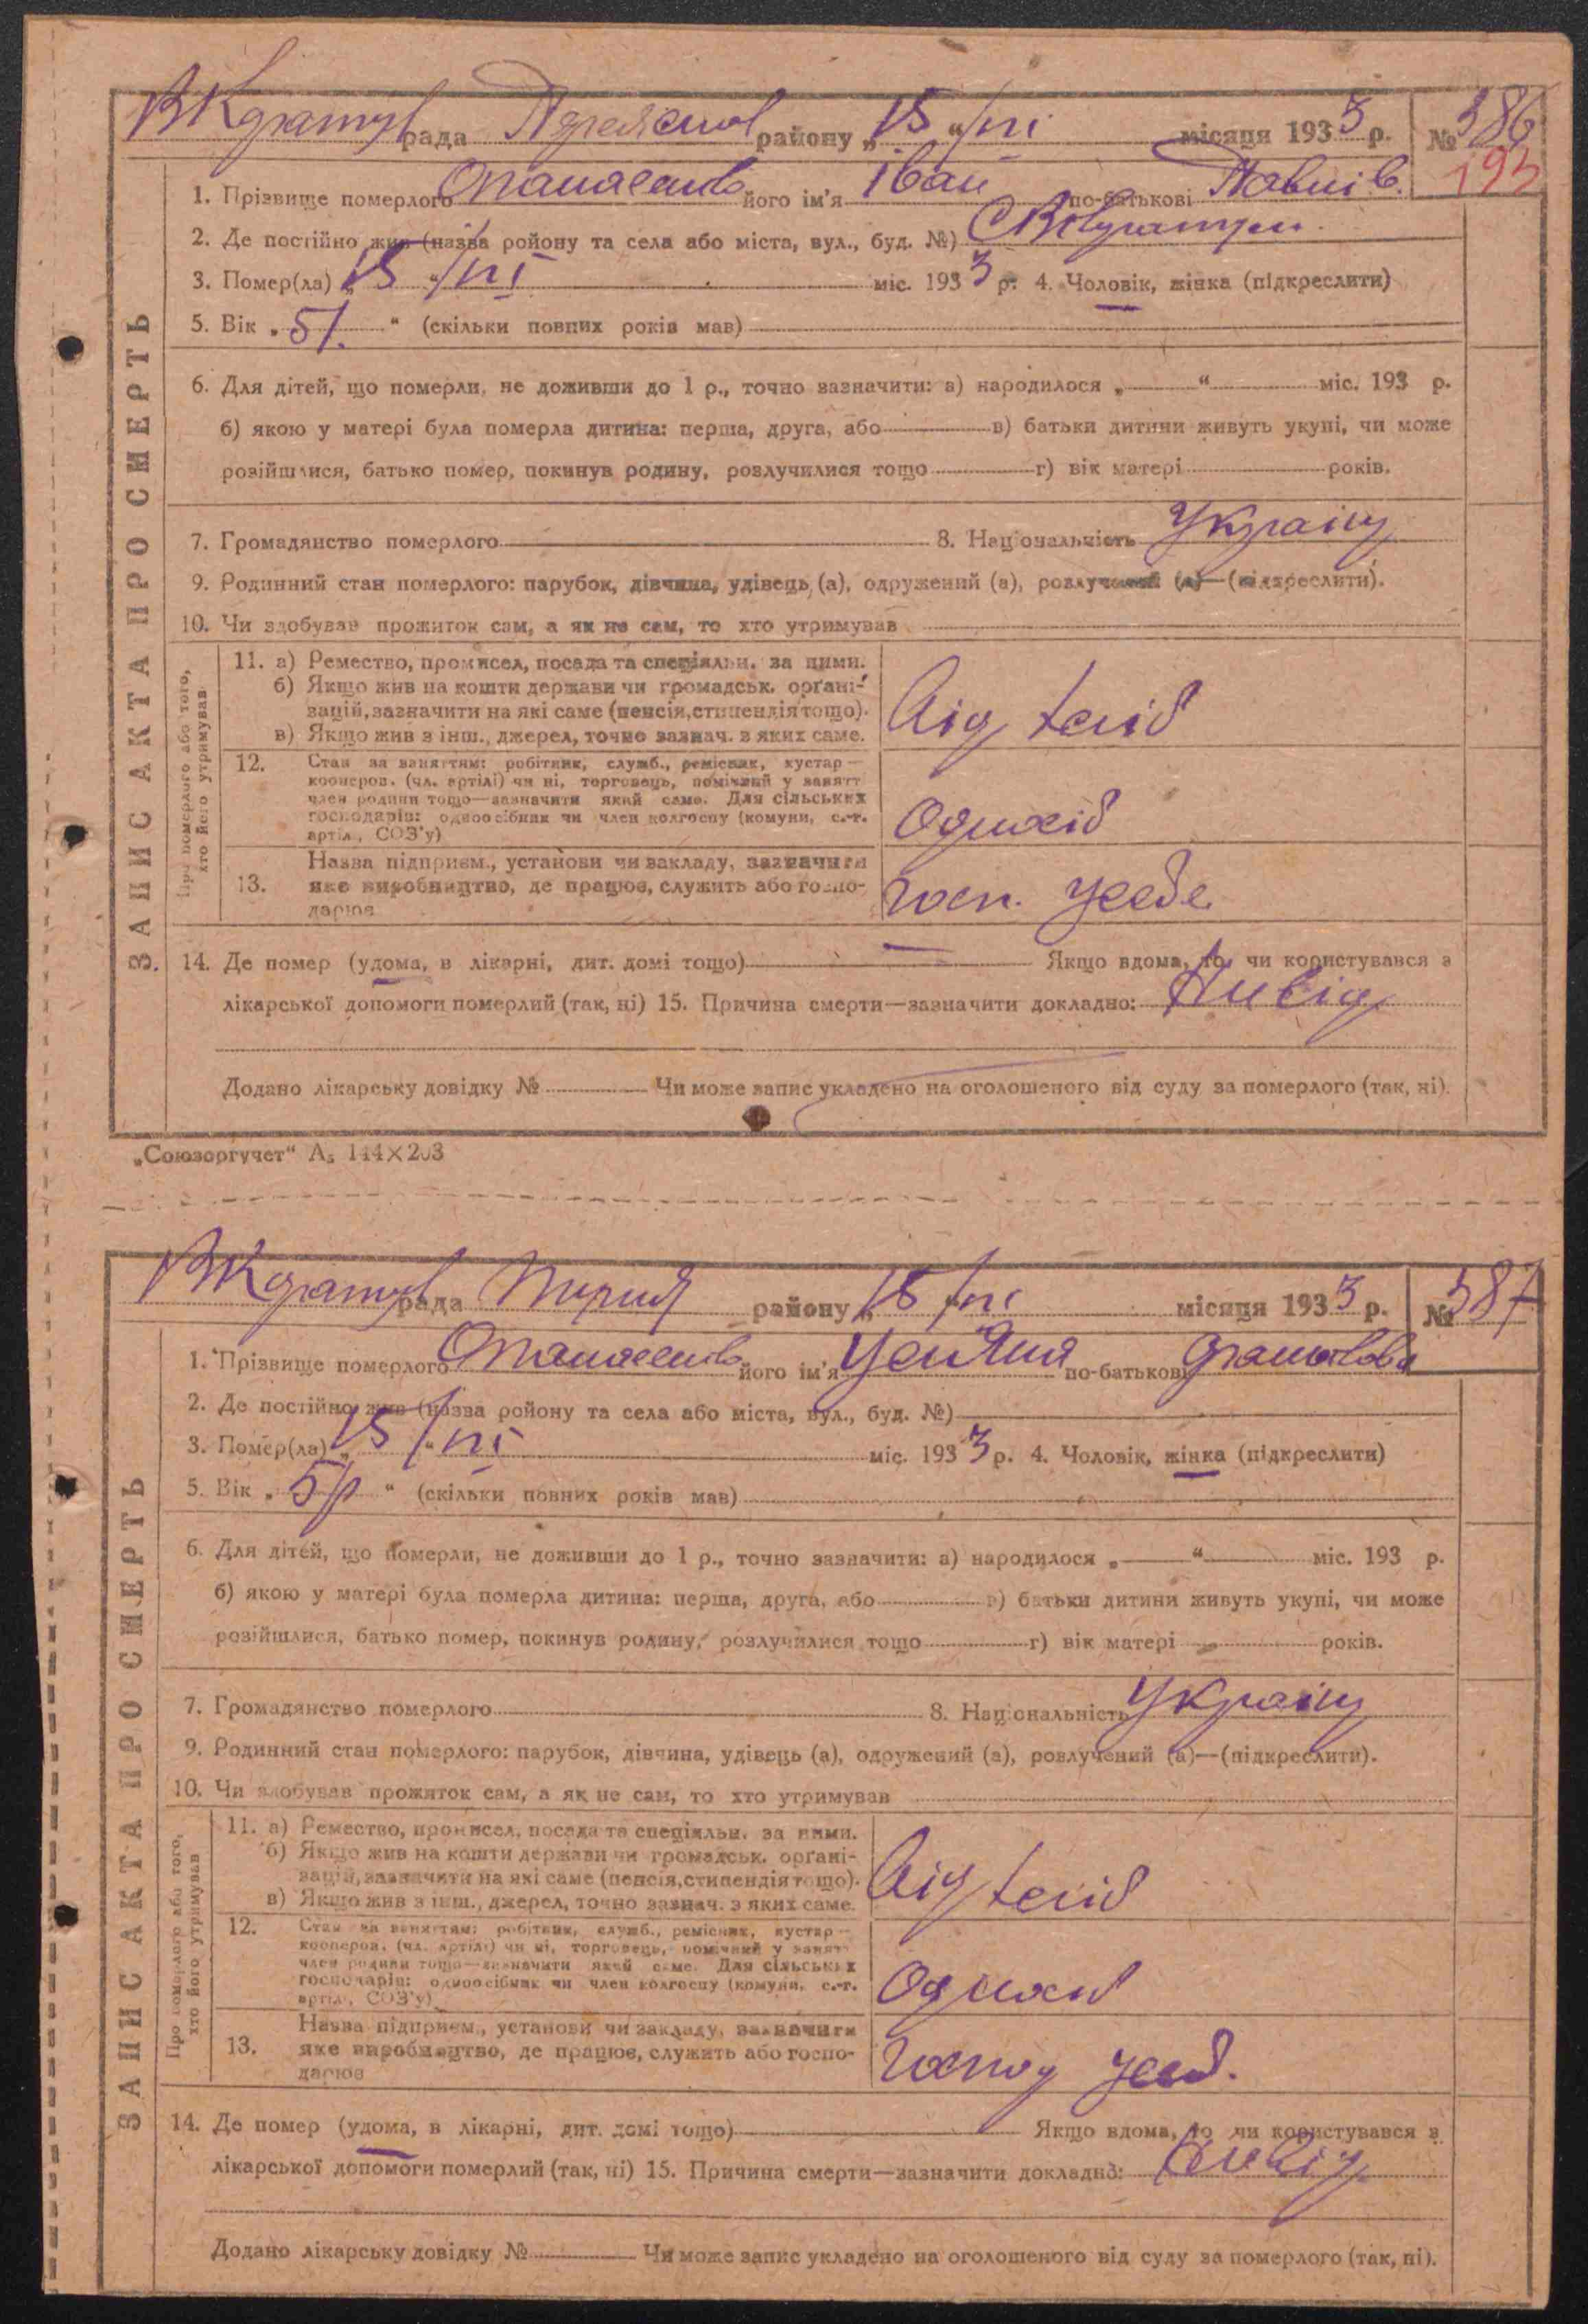 рада району „15“/VI місяця 1933 р. № 386
193
1. Прізвище померлого Опанасенко його ім'я Іван по-батькові
2. Де постійно жив (назва ройону та села або міста, вул., буд. №)
3. Помер(ла) „15“/VI міс. 1933 р. 4. Чоловік, жінка (підкреслити)
5. Вік „51.“ (скільки повних років мав)
6. Для дітей, що померли, не доживши до 1 р., точно зазначити: а) народилося „ “ міс. 193 р.
б) якою у матері була померла дитина: перша, друга, або в) батьки дитини живуть укупі, чи може
розійшлися, батько помер, покинув родину, розлучилися тощо г) вік матері років.
7. Громадянство померлого 8. Національність Україн
9. Родинний стан померлого: парубок, дівчина, удівець (а), одружений (а), розлучений (а)—(підкреслити).
10. Чи здобував прожиток сам, а як не сам, то хто утримував
ЗАПИС АКТА ПРО СМЕРТЬ
Про померлого або того,
хто його утримував
11. а) Ремество, промисел, посада та спеціяльн. за ними.
б) Якщо жив на кошти держави чи громадськ. орґані-
зацій, зазначити на які саме (пенсія, стипендія тощо).
в) Якщо жив з інш., джерел, точно зазнач. з яких саме.
12. Стан за заняттям: робітник, служб., ремісник, кустар—
кооперов. (чл. артілі) чи ні, торговець, помічний у занятт
член родини тощо—зазначити який саме. Для сільських
господарів: одноосібник чи член колгоспу (комуни, с.-г.
артіл., СОЗ'у)
Одноосіб
Назва підприєм., установи чи закладу, зазначити
13. яке виробництво, де працює, служить або госпо-
дарює
Госп. у себе
14. Де помер (удома, в лікарні, дит. домі тощо) Якщо вдома, то чи користувався з
лікарської допомоги померлий (так, ні) 15. Причина смерти—зазначити докладно:
Додано лікарську довідку № Чи може запис укладено на оголошеного від суду за померлого (так, ні).
„Союзоргучет“ А5 144×203
рада району „15“/VI місяця 1933 р. № 387
1. Прізвище померлого Опанасенко його ім'я по-батькові
2. Де постійно жив (назва ройону та села або міста, вул., буд. №)
3. Помер(ла) „15“/VI міс. 1933 р. 4. Чоловік, жінка (підкреслити)
5. Вік „ “ (скільки повних років мав)
6. Для дітей, що померли, не доживши до 1 р., точно зазначити: а) народилося „ “ міс. 193 р.
б) якою у матері була померла дитина: перша, друга, або в) батьки дитини живуть укупі, чи може
розійшлися, батько помер, покинув родину, розлучилися тощо г) вік матері років.
7. Громадянство померлого 8. Національність Україн
9. Родинний стан померлого: парубок, дівчина, удівець (а), одружений (а), розлучений (а)—(підкреслити).
10. Чи здобував прожиток сам, а як не сам, то хто утримував
ЗАПИС АКТА ПРО СМЕРТЬ
Про померлого або того,
хто його утримував
11. а) Ремество, промисел, посада та спеціяльн. за ними.
б) Якщо жив на кошти держави чи громадськ. орґані-
зацій, зазначити на які саме (пенсія, стипендія тощо).
в) Якщо жив з інш., джерел, точно зазнач. з яких саме.
12. Стан за заняттям: робітник, служб., ремісник, кустар—
кооперов. (чл. артілі) чи ні, торговець, помічний у занятт
член родини тощо—зазначити який саме. Для сільських
господарів: одноосібник чи член колгоспу (комуни, с.-г.
артіл., СОЗ'у)
Одноосіб
Назва підприєм., установи чи закладу, зазначити
13. яке виробництво, де працює, служить або госпо-
дарює
Господ у себ.
14. Де помер (удома, в лікарні, дит. домі тощо) Якщо вдома, то чи користувався з
лікарської допомоги померлий (так, ні) 15. Причина смерти—зазначити докладно:
Додано лікарську довідку № Чи може запис укладено на оголошеного від суду за померлого (так, ні).